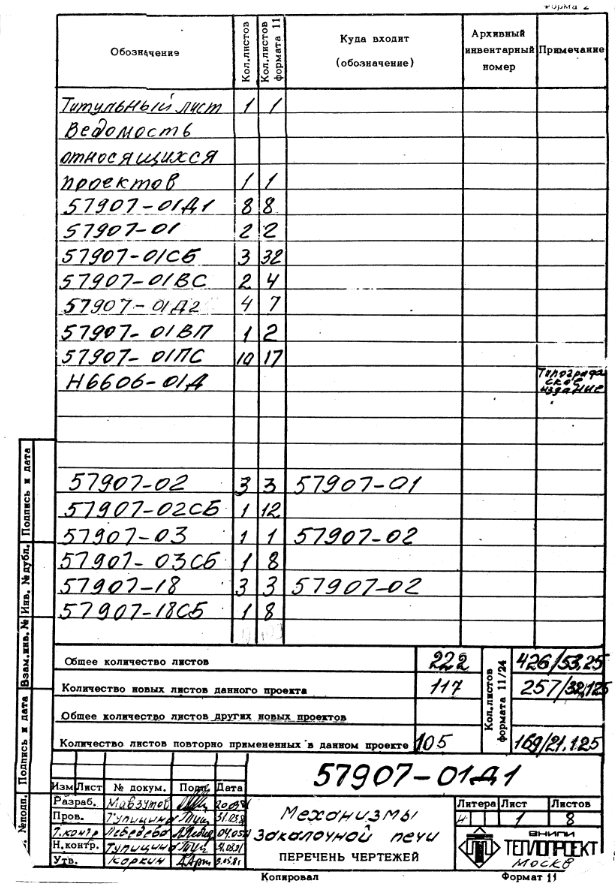 Форма 2
Обозначение Кол.листов Кол.листов формата 11 Куда входит (обозначение) Архивный инвентарный номер Примечание
Титульный лист 1 1
Ведомость
относящихся
проектов 1 1
57907-01Д1 8 8
57907-01 2 2
57907-01СБ 3 32
57907-01ВС 2 4
57907-01Д2 4 7
57907-01ВП 1 2
57907-01ПС 10 17
Н6606-01Д Типографское издание
57907-02 3 3 57907-01
57907-02СБ 1 12
57907-03 1 1 57907-02
57907-03СБ 1 8
57907-18 3 3 57907-02
57907-18СБ 1 8
Общее количество листов 222 Кол.листов формата 11/24 426/53,25
Количество новых листов данного проекта 117 257/32,125
Общее количество листов других новых проектов
Количество листов повторно примененных в данном проекте 105 169/21.125
57907-01Д1
Изм Лист № докум. Подп. Дата
Разраб. Мавзутов
Пров. Тупицина
Т.контр Лебедева
Н.контр. Тупицина
Утв. Коркин
Механизмы
закалочной печи
ПЕРЕЧЕНЬ ЧЕРТЕЖЕЙ
Литера Лист Листов
И 1 8
ВНИПИ
ТЕПЛОПРОЕКТ
МОСКВА
Копировал Формат 11
№ подл. Подпись и дата Взам.инв.№ Инв. № дубл. Подпись и дата